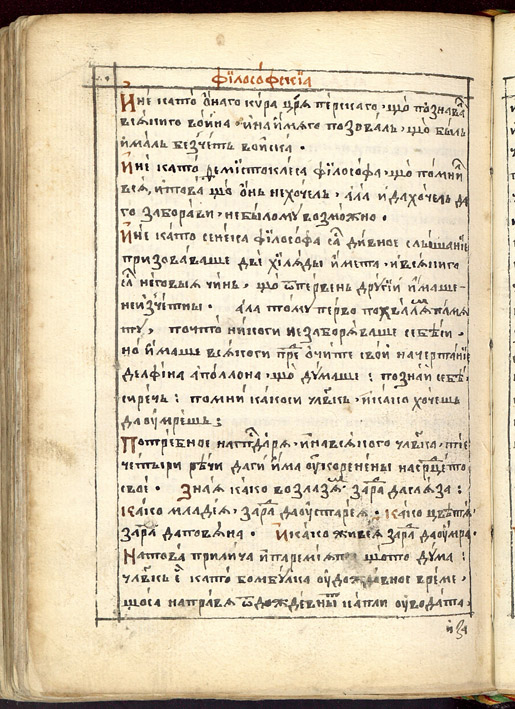 фїлосо́фскїа
И҆ не като ѻ҆наго кѵра цр҃ѧ перскаго, що познава
всѧкиго война и на имѧто позоваль, що быль
и҆маль безчетъ войска.
И҆ не като ѳемїстоклеса фїлософа, що помни
всѧ, и това що ѡ҆нь нехочель, ала и дахочель да
го заборави, небыло му возможно.
И҆ не като сенека фїлософа са дивное слышанїе
призоваваше две хїлѧды имета, и всѧкиго
са неговыѧ чинь, що ѿ первень другїй и҆маше
неизчетны. ала тому перво похвалѧ памѧ
ту, почто никоги незаборѧваше себѣси,
но и҆маше всѧкоги пред очите свои начертанїе
делфїна аполлона, що думаше: познай себѣ,
сиречь: помни какоси чл҃вкъ, и како хочешь
да оумрешь;
Потребное на сп҃дарѧ, и на всѧкого чл҃вка, тїе
четыри рѣчи даги има оукоренены на ср҃цето
свое. Знаѧ како возлазѧ заради даслѧза:
како младѣѧ, заради да оустарѣѧ. како цвѣтѧ
заради да повѧна. И како живѣѧ заради да оумра.
На това прилича и паремїѧта щото дума:
чл҃вкъ е като бомбулка оу дождовное време,
щоса направѧ ѿ дождевныѧ капли оу водата,